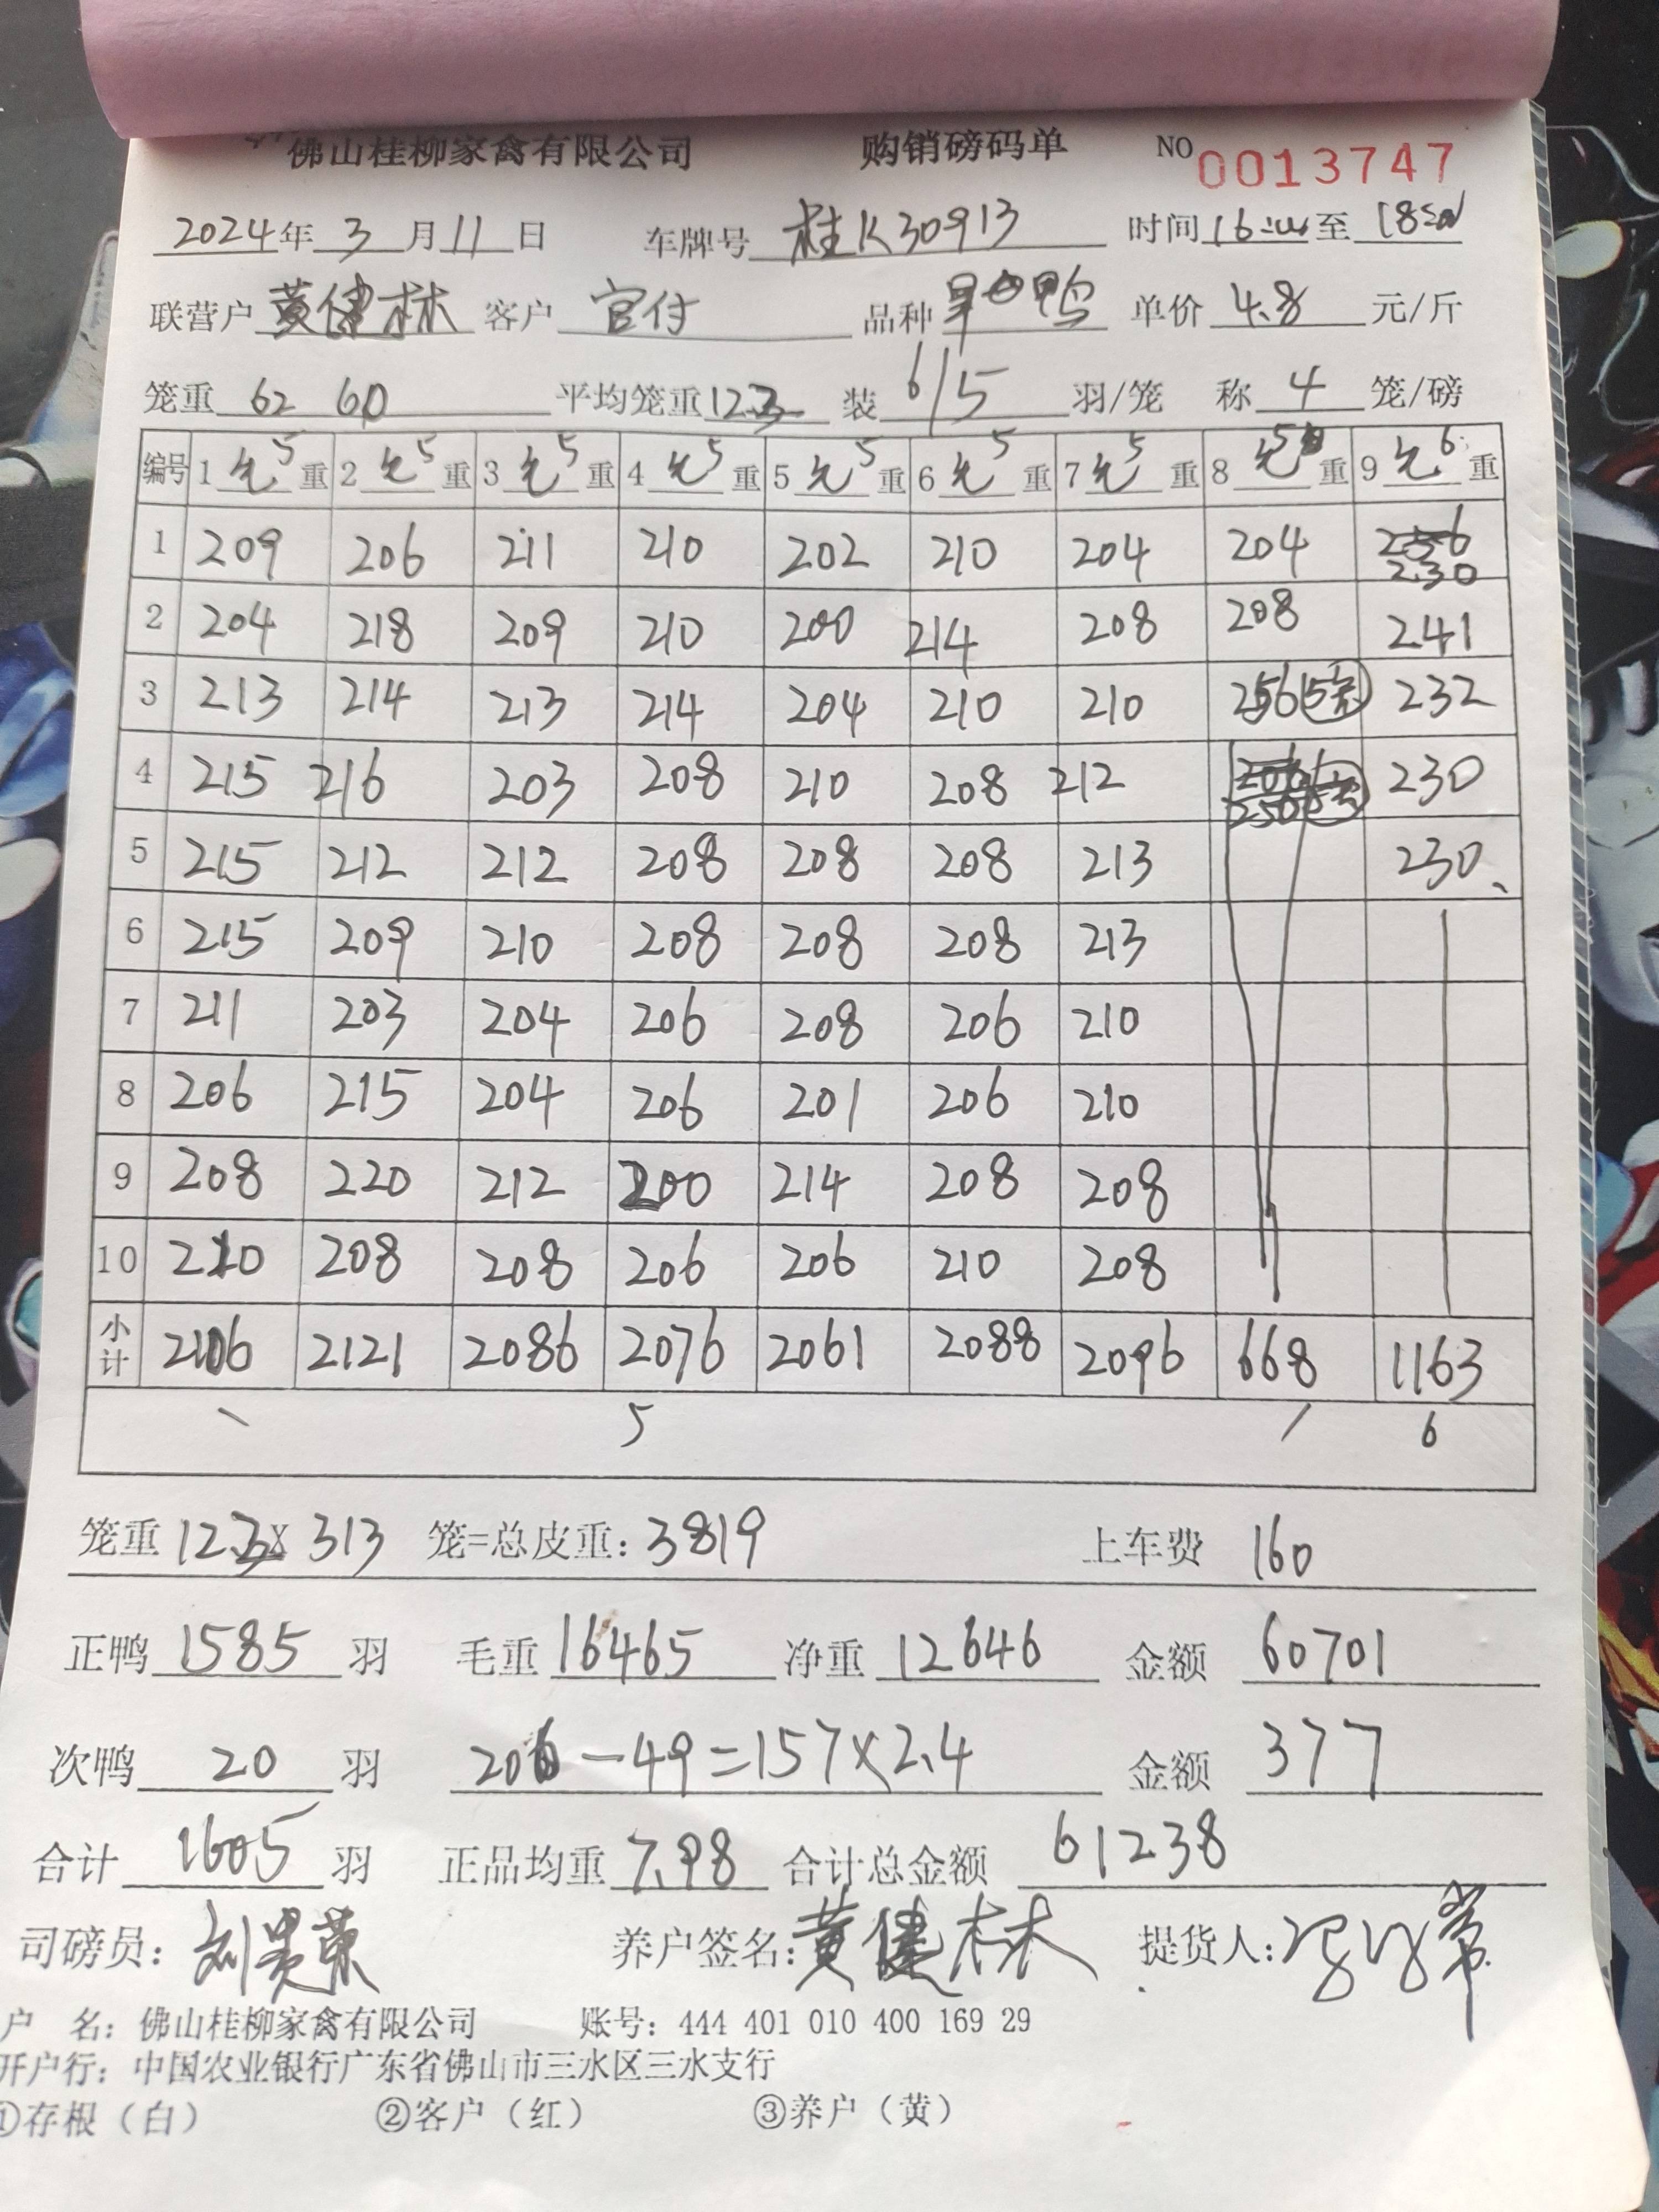 佛山桂柳家禽有限公司 购销磅码单 NO 0013747
2024年 3 月 11 日 车牌号 桂K30913 时间 16 至 18
联营户 黄健林 客户 官付 品种 鸭 单价 4.8 元/斤
笼重 62 60 平均笼重 12.2 装 6/5 羽/笼 称 4 笼/磅
编号 1 5 重 2 5 重 3 5 重 4 5 重 5 5 重 6 5 重 7 5 重 8 5 重 9 6 重
1 209 206 211 210 202 210 204 204 230
2 204 218 209 210 200 214 208 208 241
3 213 214 213 214 204 210 210 256 232
4 215 216 203 208 210 208 212 230
5 215 212 212 208 208 208 213 230
6 215 209 210 208 208 208 213
7 211 203 204 206 208 206 210
8 206 215 204 206 201 206 210
9 208 220 212 200 214 208 208
10 210 208 208 206 206 210 208
小计 2106 2121 2086 2076 2061 2088 2096 668 1163
5 6
笼重 12.2 x 313 笼=总皮重: 3819 上车费 160
正鸭 1585 羽 毛重 16465 净重 12646 金额 60701
次鸭 20 羽 206-49=157×2.4 金额 377
合计 1605 羽 正品均重 7.98 合计总金额 61238
司磅员: 刘贵荣 养户签名: 黄健林 提货人:
户 名: 佛山桂柳家禽有限公司 账号: 444 401 010 400 169 29
开户行: 中国农业银行广东省佛山市三水区三水支行
①存根(白) ②客户(红) ③养户(黄)